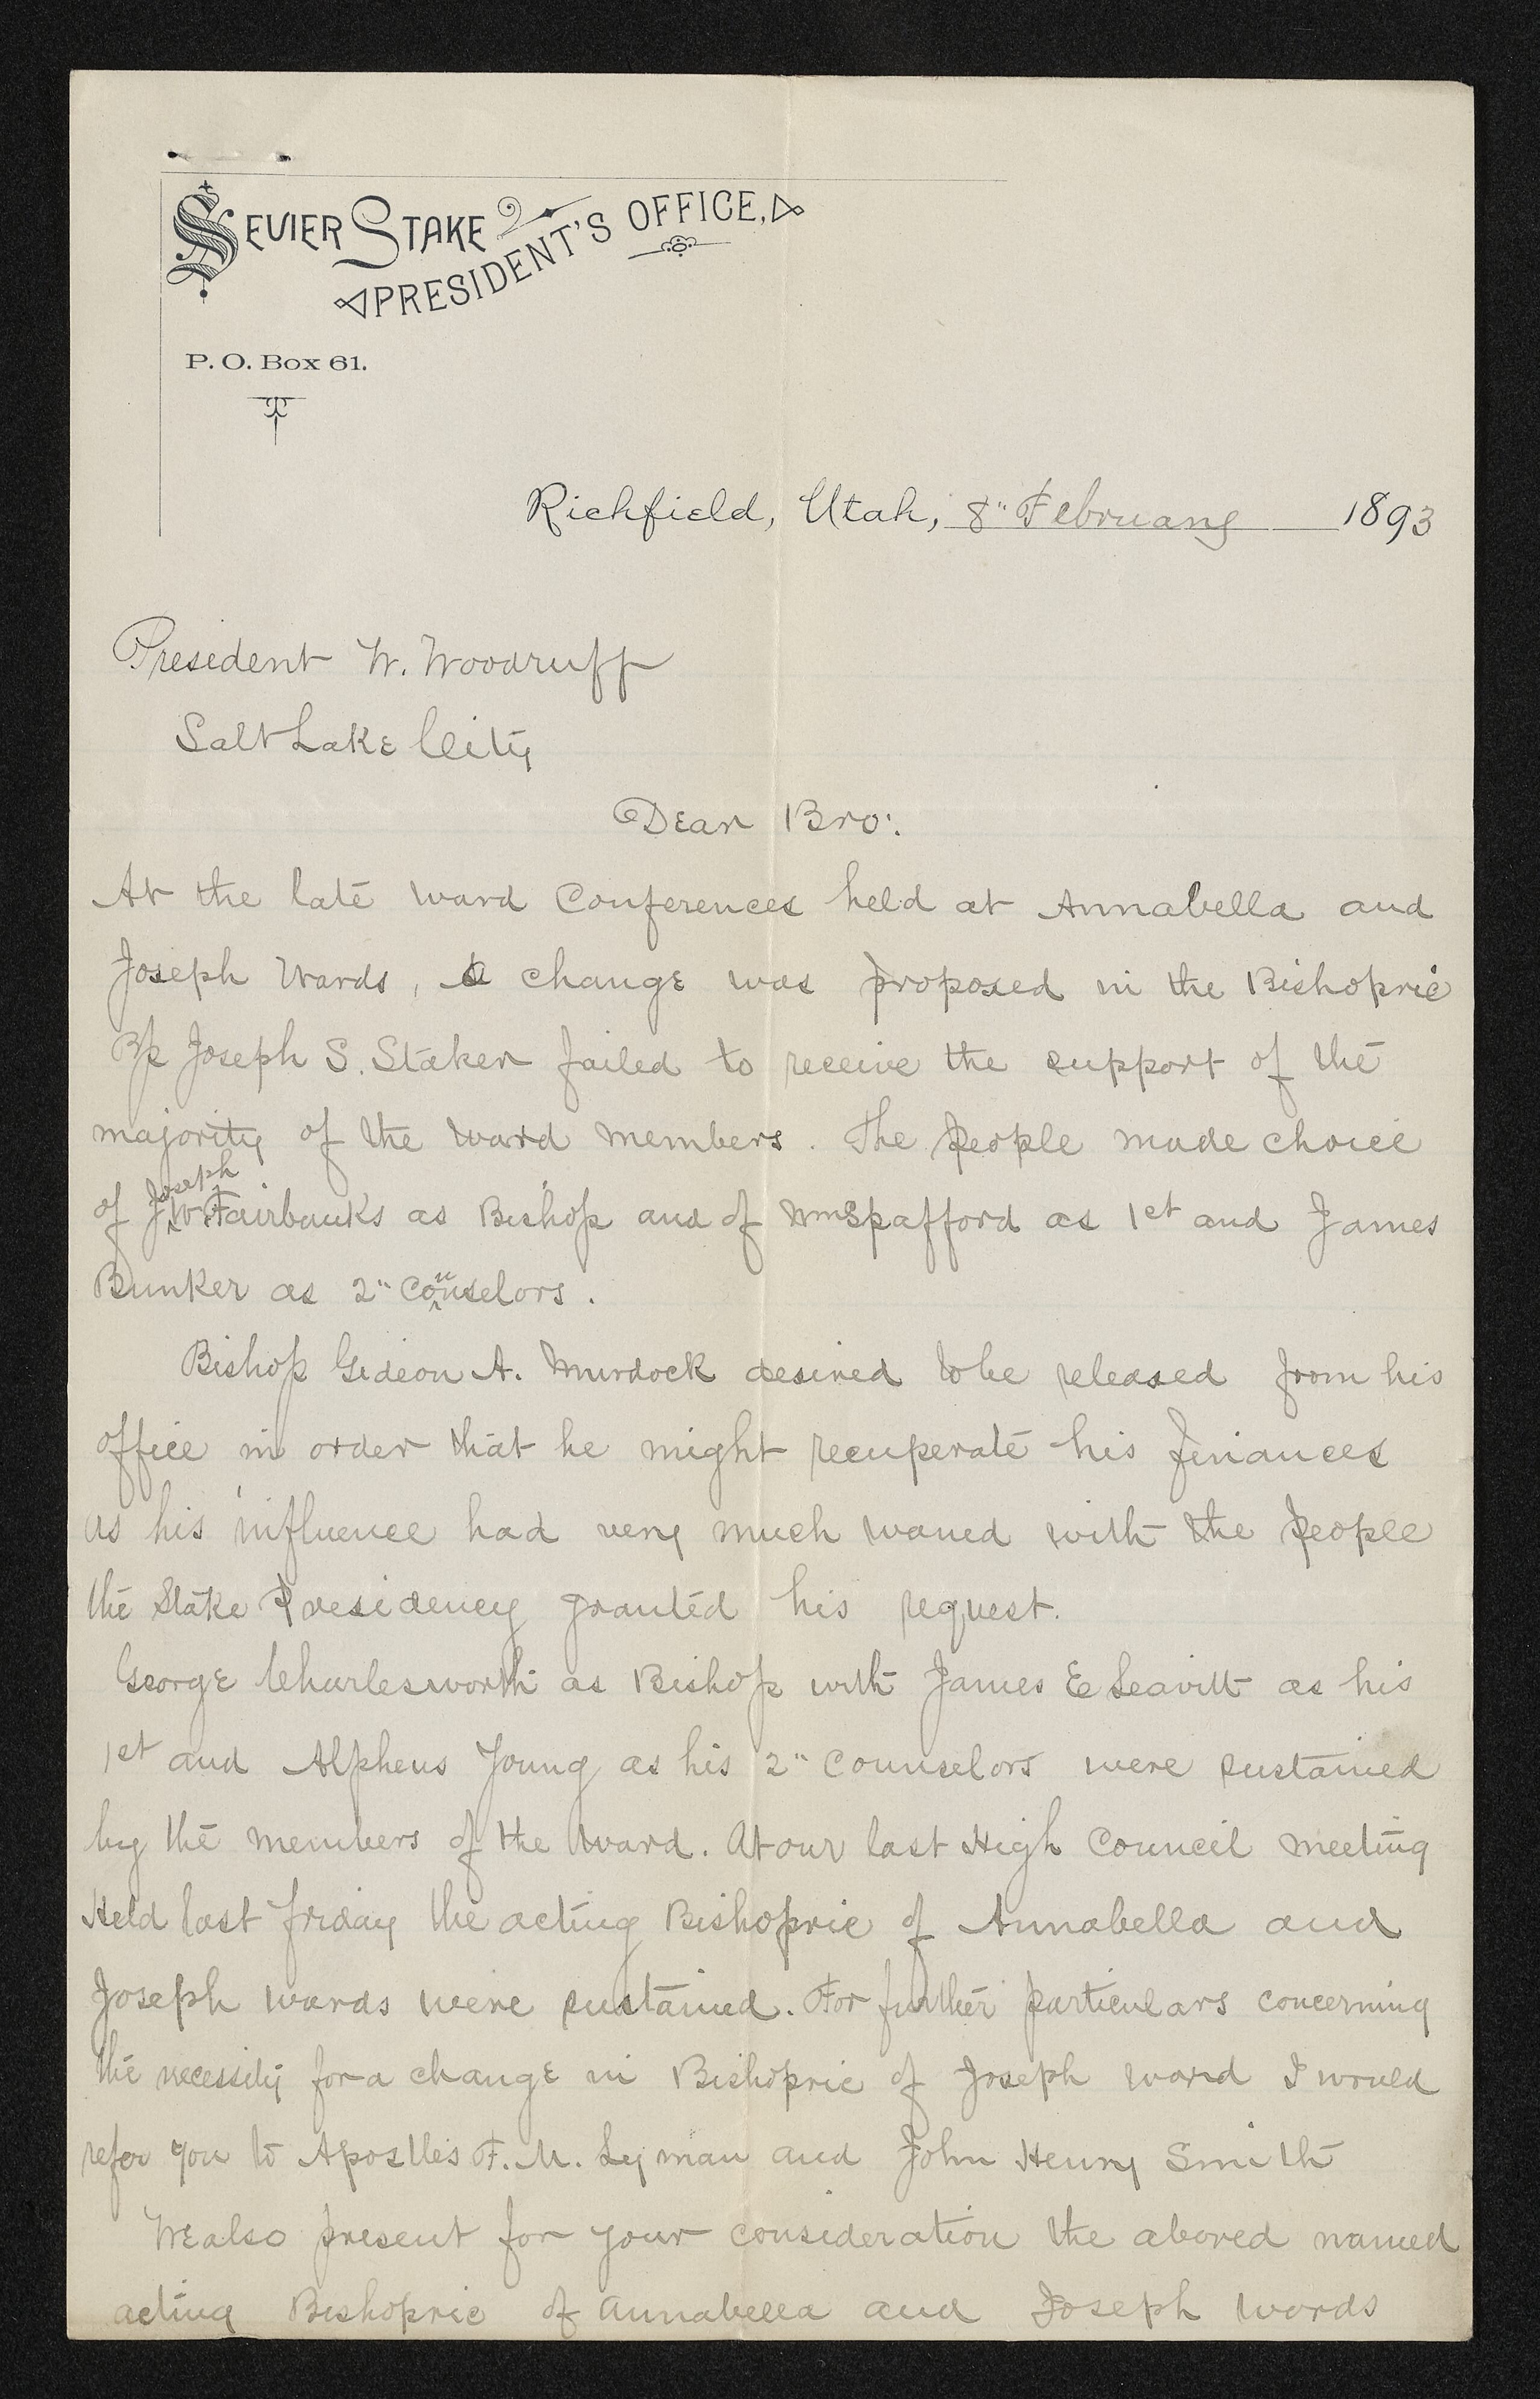 SEVIER STAKE
PRESIDENT'S OFFICE,
P. O. Box 61.
Richfield, Utah, 8" February 1893
President W. Woodruff
Salt Lake City
Dear Bro:
At the late ward Conferences held at Annabella and
Joseph Wards, a change was proposed in the Bishopric
Bp Joseph S. Staker failed to receive the support of the
majority of the ward members. The people made choice
of Joseph W. Fairbanks as Bishop and of Wm Spafford as 1st and James
Bunker as 2" Counselors.
Bishop Gideon A. Murdock desired to be released from his
office in order that he might recuperate his finances
as his influence had very much waned with the people
the Stake Presidency granted his request.
George Charlesworth as Bishop with James E Leavitt as his
1st and Alpheus Young as his 2" Counselors were sustained
by the members of the ward. At our last High Council meeting
Held last friday the acting Bishopric of Annabella and
Joseph wards were sustained. For further particulars concerning
the necessity for a change in Bishopric of Joseph ward I would
refer you to Apostles F. M. Lyman and John Henry Smith
We also present for your consideration the aboved named
acting Bishopric of Annabella and Joseph words